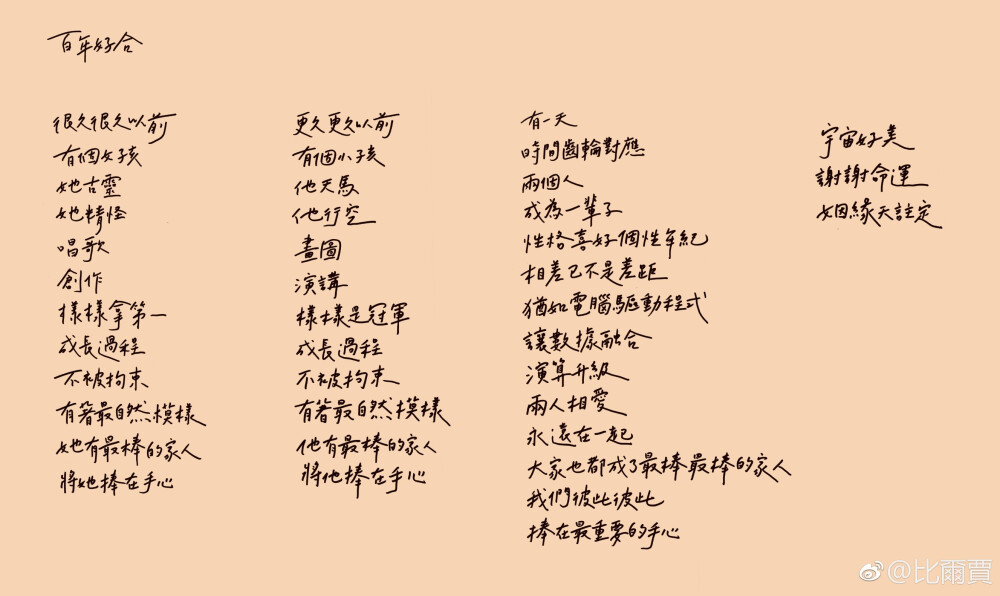 百年好合
很久很久以前
有個女孩
她古靈
她精怪
唱歌
創作
樣樣拿第一
成長過程
不被拘束
有著最自然模樣
她有最棒的家人
將她捧在手心
更久更久以前
有個小孩
他天馬
他行空
畫圖
演講
樣樣是冠軍
成長過程
不被拘束
有著最自然模樣
他有最棒的家人
將他捧在手心
有一天
時間齒輪對應
兩個人
成為一輩子
性格喜好個性年紀
相差已不是差距
猶如電腦驅動程式
讓數據融合
演算升級
兩人相愛
永遠在一起
大家也都成了最棒最棒的家人
我們彼此彼此
捧在最重要的手心
宇宙好美
謝謝命運
姻緣天註定
@比爾賈